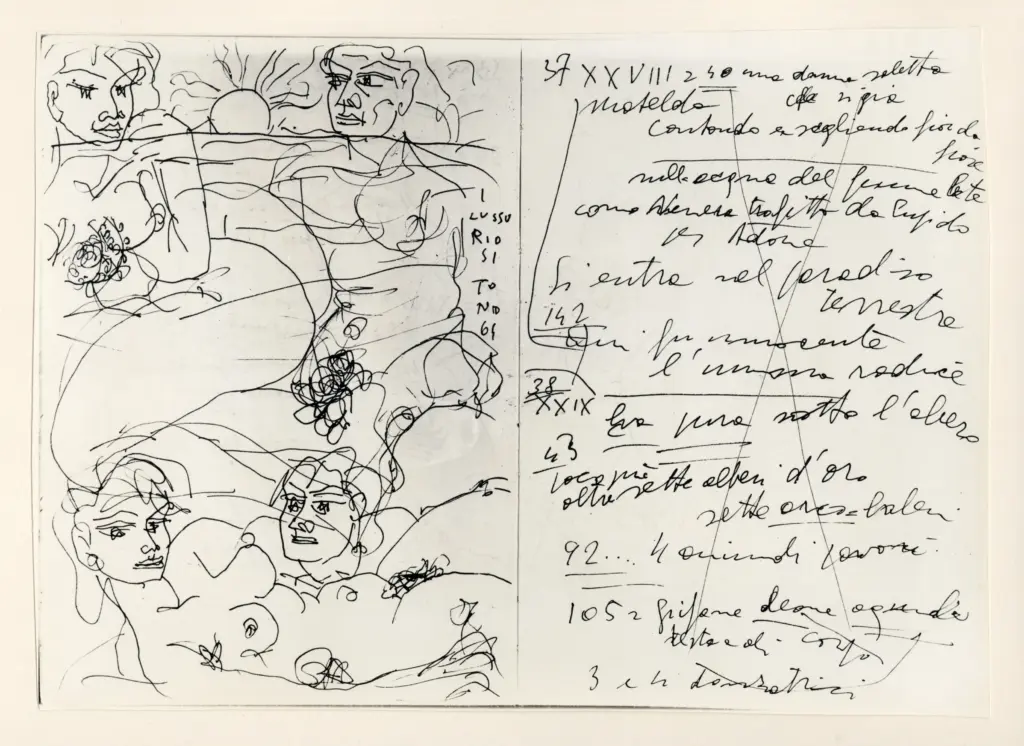 I
LUSSU
RIO
SI
TO
NO
64
37 XXVIII 2 40 una donna soletta
Matelda che si gia
cantando e scegliendo fior da
fiore
nelle acque del fiume Lete
come Venere trafitta da Cupido
Adone
Si entra nel paradiso
terrestre
142
Qui fu innocente
l'umana radice
38
XXIX Eva pura sotto l'albero
43
poco più
oltre sette alberi d'oro
sette arcobaleni
92... 4 animali
105 Grifone
testa di corpo
3 e 4 danzatrici